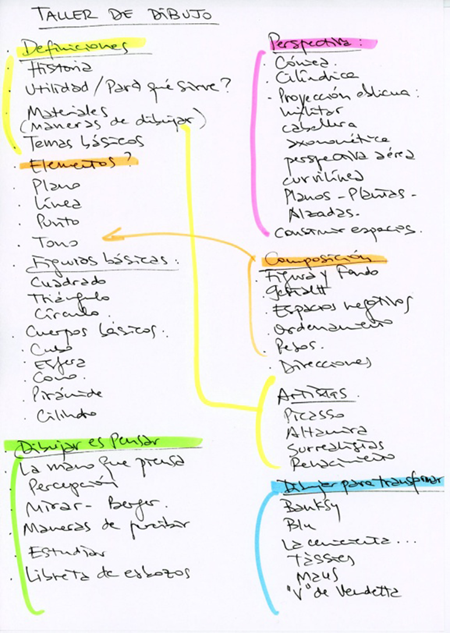 TALLER DE DIBUJO
Definiciones
. Historia
. Utilidad / Para qué sirve?
. Materiales
(maneras de dibujar)
. Temas básicos
. Elementos?
. Plano
. Línea
. Punto
. Tono
Figuras básicas:
. Cuadrado
. Triángulo
. Círculo.
. Cuerpos básicos:
. Cubo
. Esfera
. Cono.
. Pirámide
. Cilindro
Dibujar es Pensar
. La mano que piensa
. Percepción
. Mirar - Berger.
. Maneras de percibir
. Estudiar
. Libreta de esbozos
Perspectiva:
. Cónica.
. Cilíndrica
- Proyección oblicua:
militar
caballera
axonométrica
perspectiva aérea
curvilínea
Planos - Plantas -
Alzadas.
. Construir espacios.
Composición
. Figura y Fondo
. Gestalt
. Espacios negativos
. Ordenamiento
. Pesos.
. Direcciones
. Artistas.
Picasso
Altamira
Surrealistas
Renacimiento
. Dibujar para transformar
Banksy
Blu
La cenicienta...
Tàssies
Maus
"V" de Vendetta